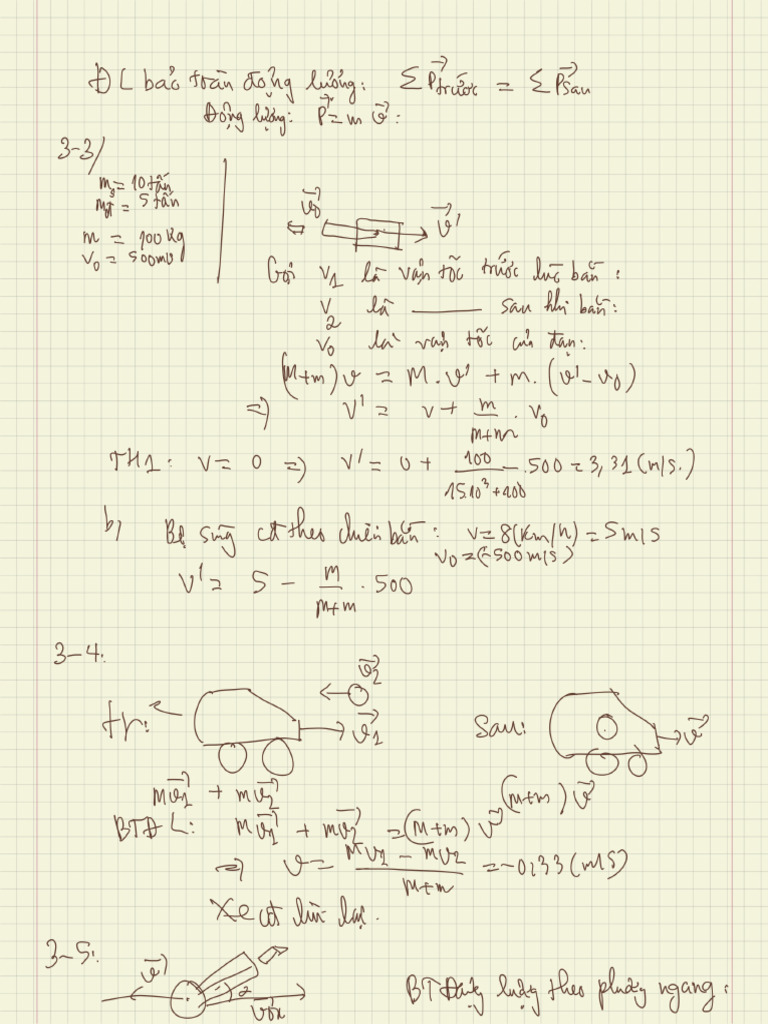 ĐL bảo toàn động lượng: ΣP⃗trước = ΣP⃗sau
Động lượng: P⃗ = m v⃗:
3-3/
m = 10 tấn
m = 5 tấn
m = 100 kg
v₀ = 500 m
v⃗₀ v⃗'
Gọi v₁ là vận tốc trước lúc bắn:
v₂ là ——— sau khi bắn:
v₀ là vận tốc của đạn:
(M+m)v = M.v' + m.(v' - v₀)
=> v' = v + m/(m+m) . v₀
TH1: v = 0 => v' = 0 + 100/(15.10³+100) . 500 = 3,31 (m/s.)
b) Bệ súng cđ theo chiều bắn: v = 8 (km/h) = 5 m/s
v₀ = (-500 m/s)
v' = 5 - m/(m+m) . 500
3-4:
v⃗₂
tr: v⃗₁ Sau: v⃗
Mv⃗₁ + mv⃗₂ (M+m) v⃗
BTĐL: Mv⃗₁ + mv⃗₂ = (M+m) v⃗
=> v = (Mv₁ - mv₂)/(M+m) = -0,33 (m/s)
Xe cđ lùi lại.
3-5:
v⃗' α v⃗₀ₓ BT động lượng theo phương ngang: